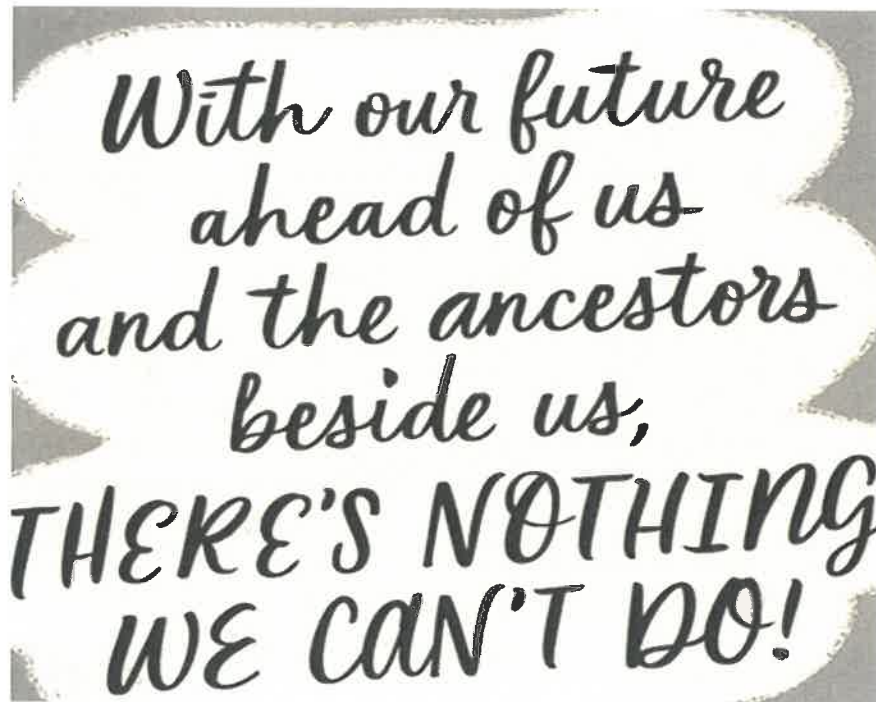 With our future
ahead of us
and the ancestors
beside us,
THERE'S NOTHING
WE CAN'T DO!